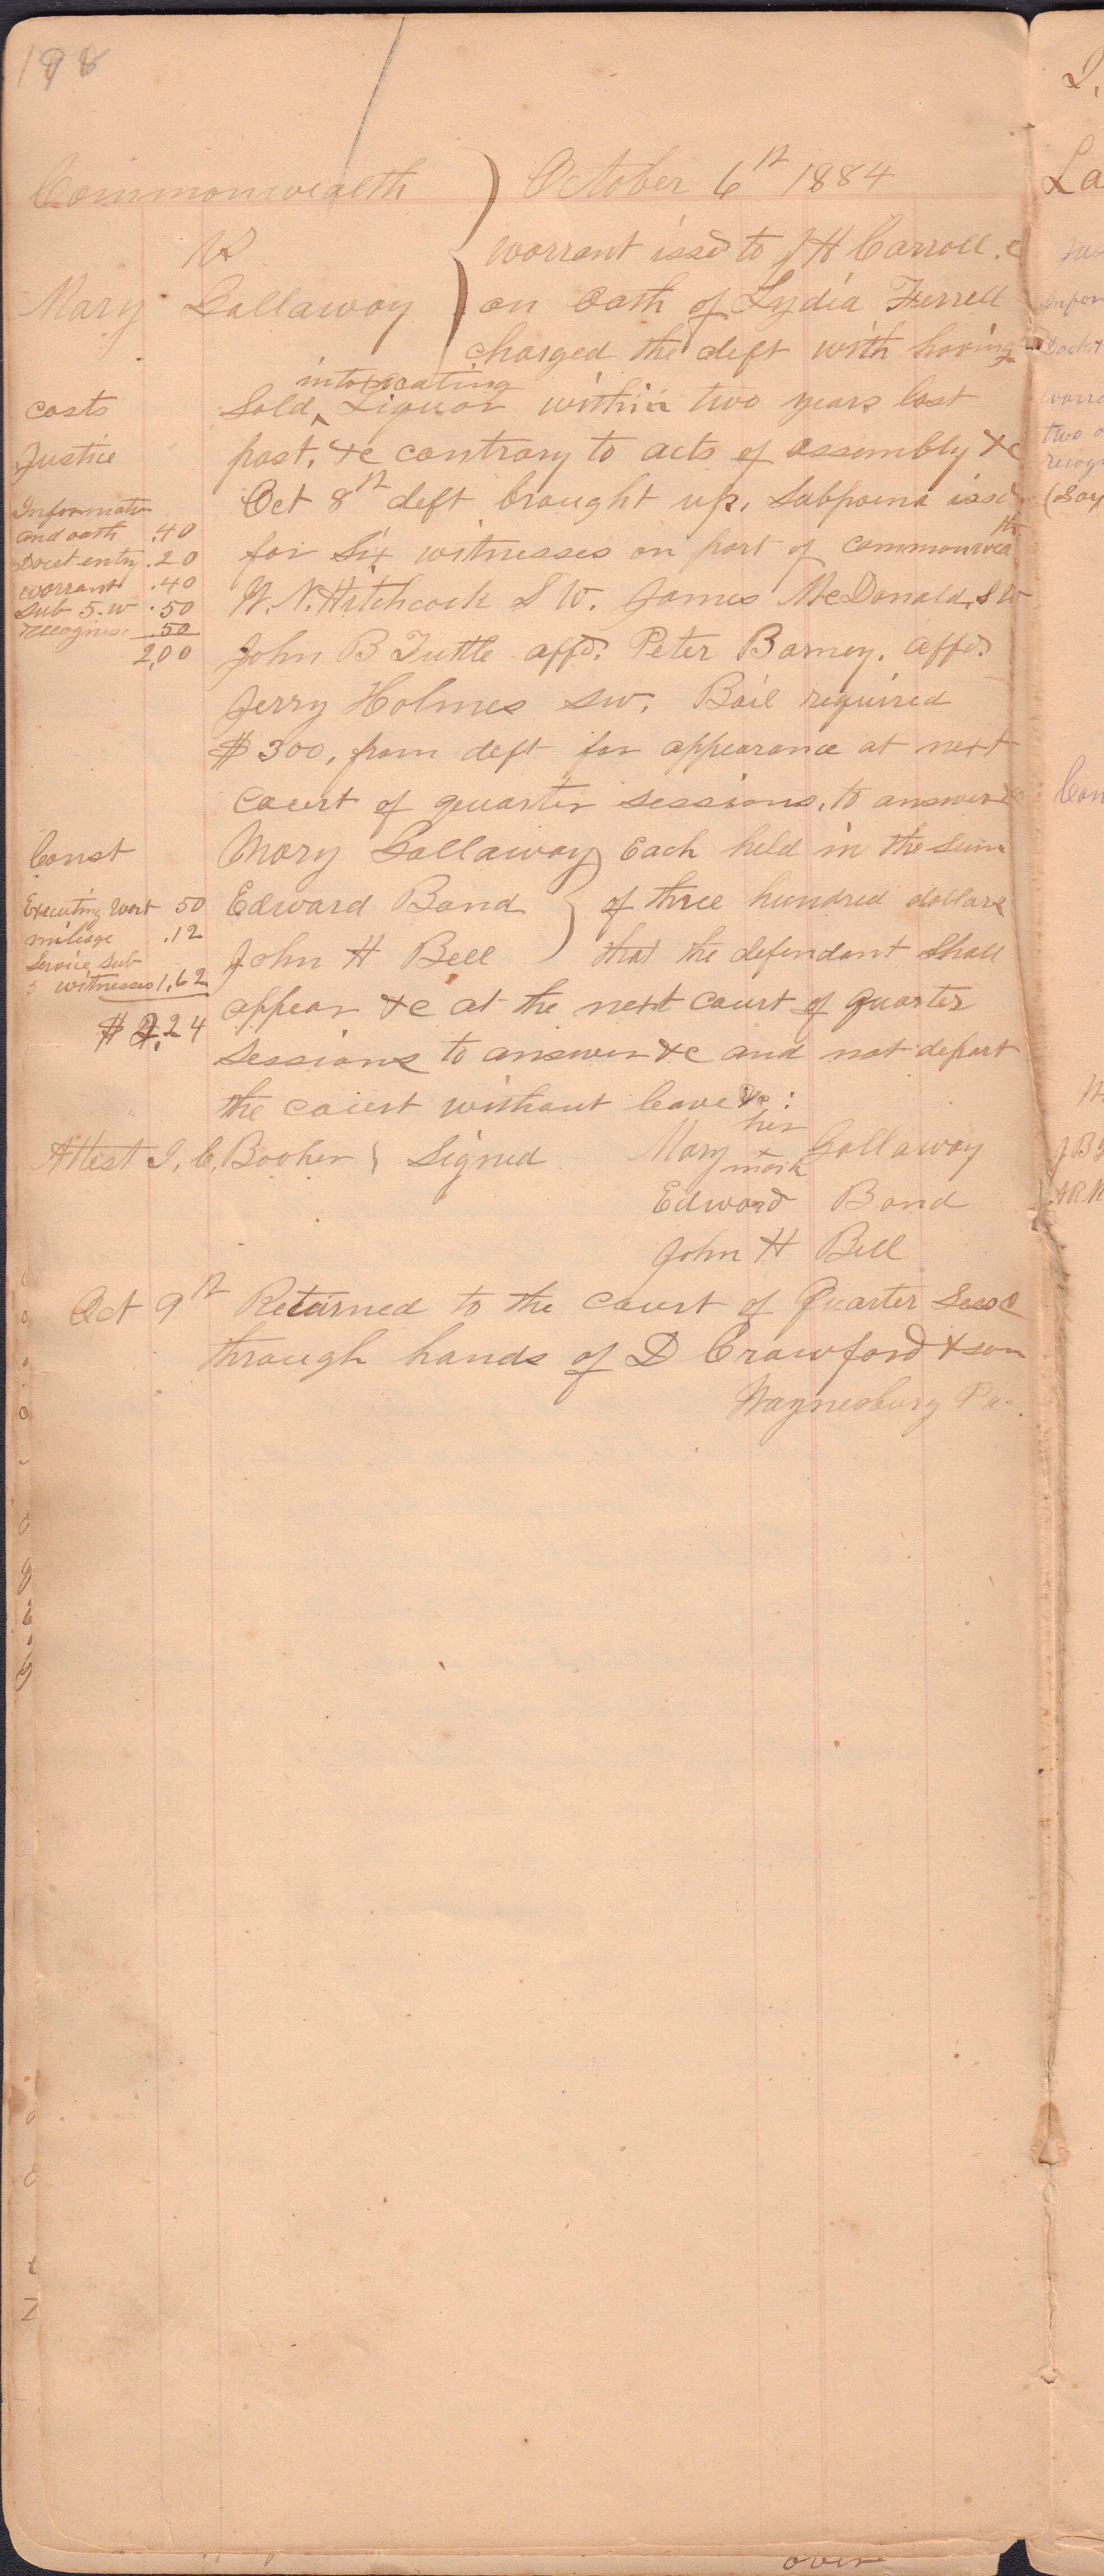 198
Commonwealth October 6th 1884
vs warrant issd to J H Carroll. c
Mary Gallaway on oath of Lydia Ferrell
charged the deft with having
intoxicating
costs Sold ^ Liquor within two years last
Justice past, &c contrary to acts of assembly &c
Information Oct 8th deft brought up, Subpoena issd
and oath .40 for Six witnesses on part of commonwealth
Docet entry .20
warrant .40 W. N. Hitchcock S W. James McDonald, S W
Sub 5. w .50
recognisc .50
2,00 John B Tuttle affd. Peter Barney. affd.
Jerry Holmes sw. Bail required
$300, from deft for appearance at next
Court of quarter sessions, to answer &c
Const Mary Gallaway Each held in the sum
Executing Wart 50 Edward Band of three hundred dollars
mileage .12
Service Sub John H Bell that the defendant Shall
5 witnesses 1,62
$ 2,24 appear &c at the next court of quarter
Sessions to answer &c and not depart
the court without leave &c :
her
Attest I, C, Booher Signed Mary Gallaway
mark
Edward Band
John H Bell
Oct 9th Returned to the court of Quarter Sess
through hands of D Crawford & son
Waynesburg Pa.
over